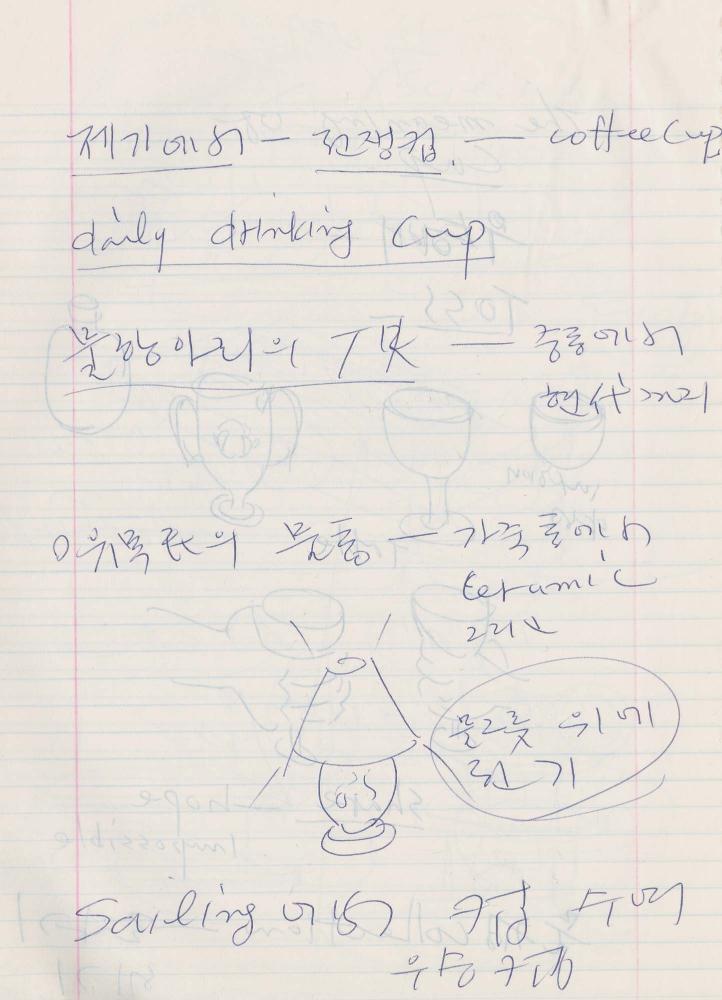 제기에서 — 전쟁컵. — coffee Cup
daily drinking Cup
물항아리의 — 중동에서
현대까지
유목민의 물통 — 가죽통에서
ceramic
그리고
물그릇 위에
전기
Sailing 에서 컵 수여
우승컵